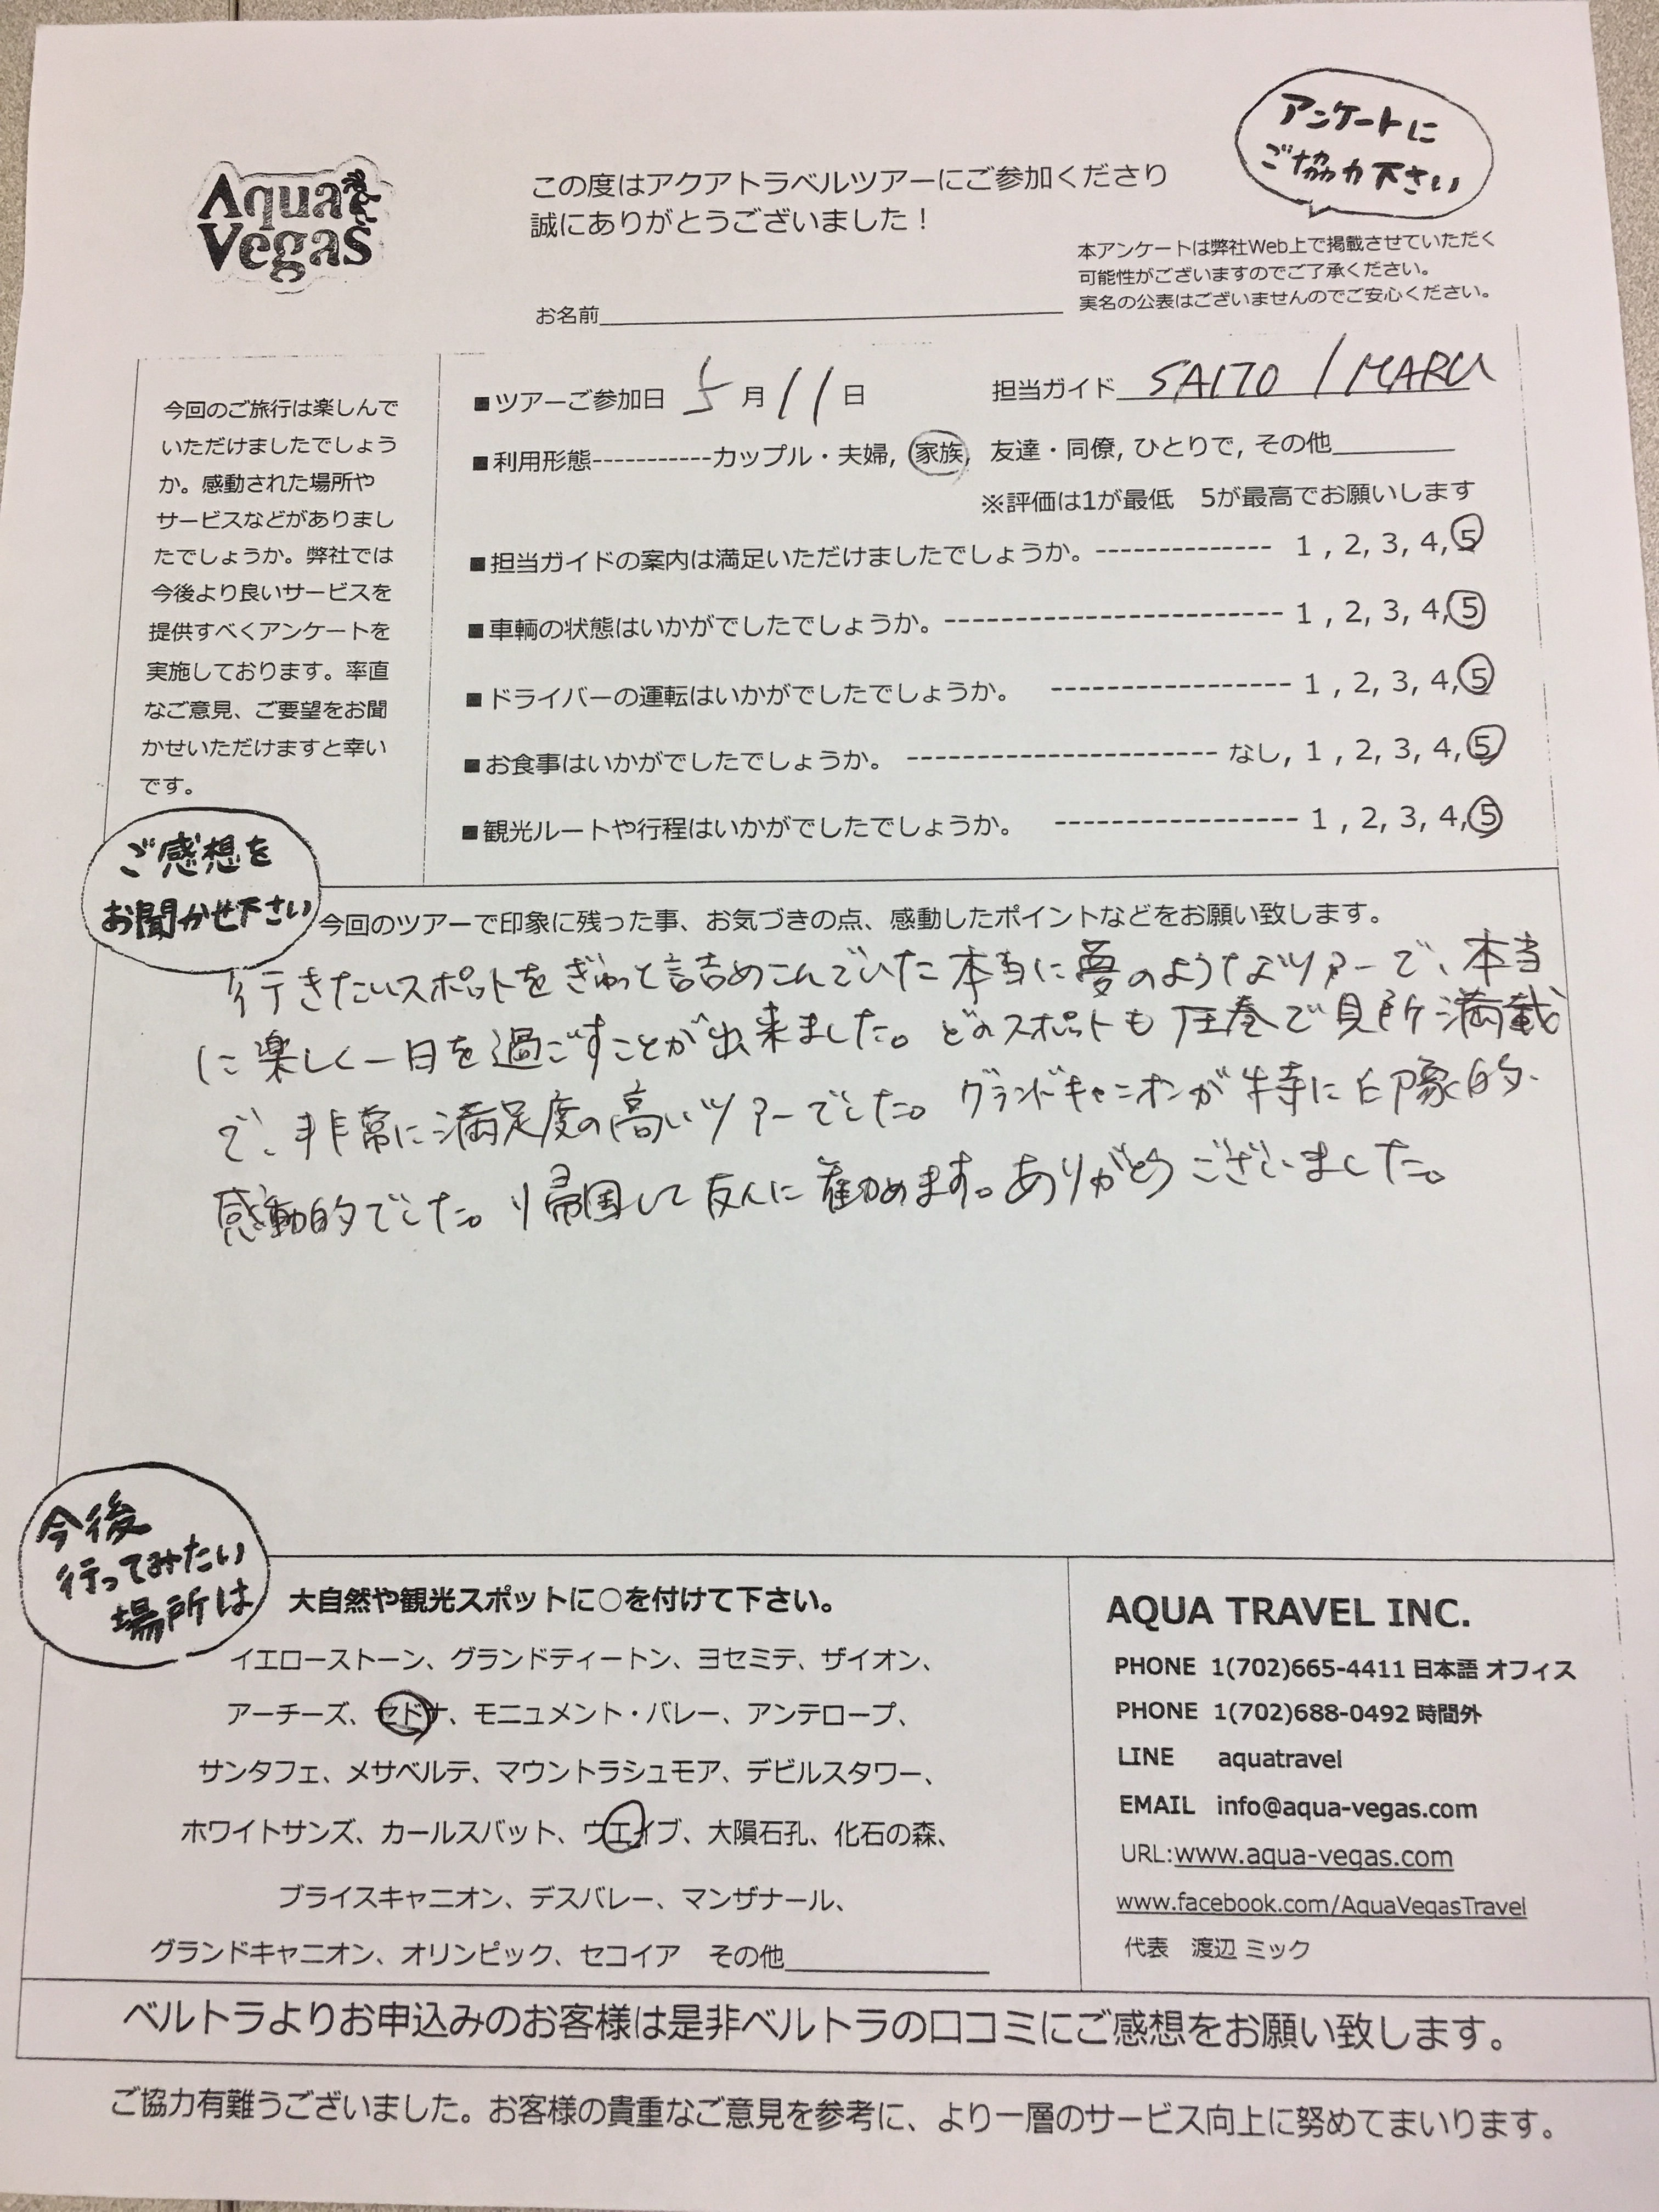 Aqua
Vegas
この度はアクアトラベルツアーにご参加くださり
誠にありがとうございました！
アンケートに
ご協力下さい
本アンケートは弊社Web上で掲載させていただく
可能性がございますのでご了承ください。
実名の公表はございませんのでご安心ください。
お名前
今回のご旅行は楽しんで
いただけましたでしょう
か。感動された場所や
サービスなどがありまし
たでしょうか。弊社では
今後より良いサービスを
提供すべくアンケートを
実施しております。率直
なご意見、ご要望をお聞
かせいただけますと幸い
です。
■ツアーご参加日 5月11日 担当ガイド SAITO / MARU
■利用形態-----------カップル・夫婦, 家族, 友達・同僚, ひとりで, その他
※評価は1が最低 5が最高でお願いします
■担当ガイドの案内は満足いただけましたでしょうか。-------------- 1 , 2, 3, 4, 5
■車輌の状態はいかがでしたでしょうか。--------------------------- 1 , 2, 3, 4, 5
■ドライバーの運転はいかがでしたでしょうか。 ------------------- 1 , 2, 3, 4, 5
■お食事はいかがでしたでしょうか。 ------------------------- なし, 1 , 2, 3, 4, 5
■観光ルートや行程はいかがでしたでしょうか。 ------------------- 1 , 2, 3, 4, 5
ご感想を
お聞かせ下さい
今回のツアーで印象に残った事、お気づきの点、感動したポイントなどをお願い致します。
行きたいスポットをぎゅっと詰めこんでいた本当に夢のようなツアーで、本当
に楽しく一日を過ごすことが出来ました。どのスポットも圧巻で見所満載
で、非常に満足度の高いツアーでした。グランドキャニオンが特に印象的・
感動的でした。帰国して友人に勧めます。ありがとうございました。
今後
行ってみたい
場所は
大自然や観光スポットに○を付けて下さい。
イエローストーン、グランドティートン、ヨセミテ、ザイオン、
アーチーズ、セドナ、モニュメント・バレー、アンテロープ、
サンタフェ、メサベルテ、マウントラシュモア、デビルスタワー、
ホワイトサンズ、カールスバット、ウエイブ、大隕石孔、化石の森、
ブライスキャニオン、デスバレー、マンザナール、
グランドキャニオン、オリンピック、セコイア その他
AQUA TRAVEL INC.
PHONE 1(702)665-4411 日本語 オフィス
PHONE 1(702)688-0492 時間外
LINE aquatravel
EMAIL info@aqua-vegas.com
URL:www.aqua-vegas.com
www.facebook.com/AquaVegasTravel
代表 渡辺 ミック
ベルトラよりお申込みのお客様は是非ベルトラの口コミにご感想をお願い致します。
ご協力有難うございました。お客様の貴重なご意見を参考に、より一層のサービス向上に努めてまいります。